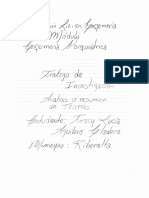 Lic. en Enfermería
Módulo
Enfermería Psiquiatrica
Trabajo de
Investigación
Analisis o resumen
de Teoria
Estudiante: Tracy Lucia
Aguilera
Municipio: Riberalta